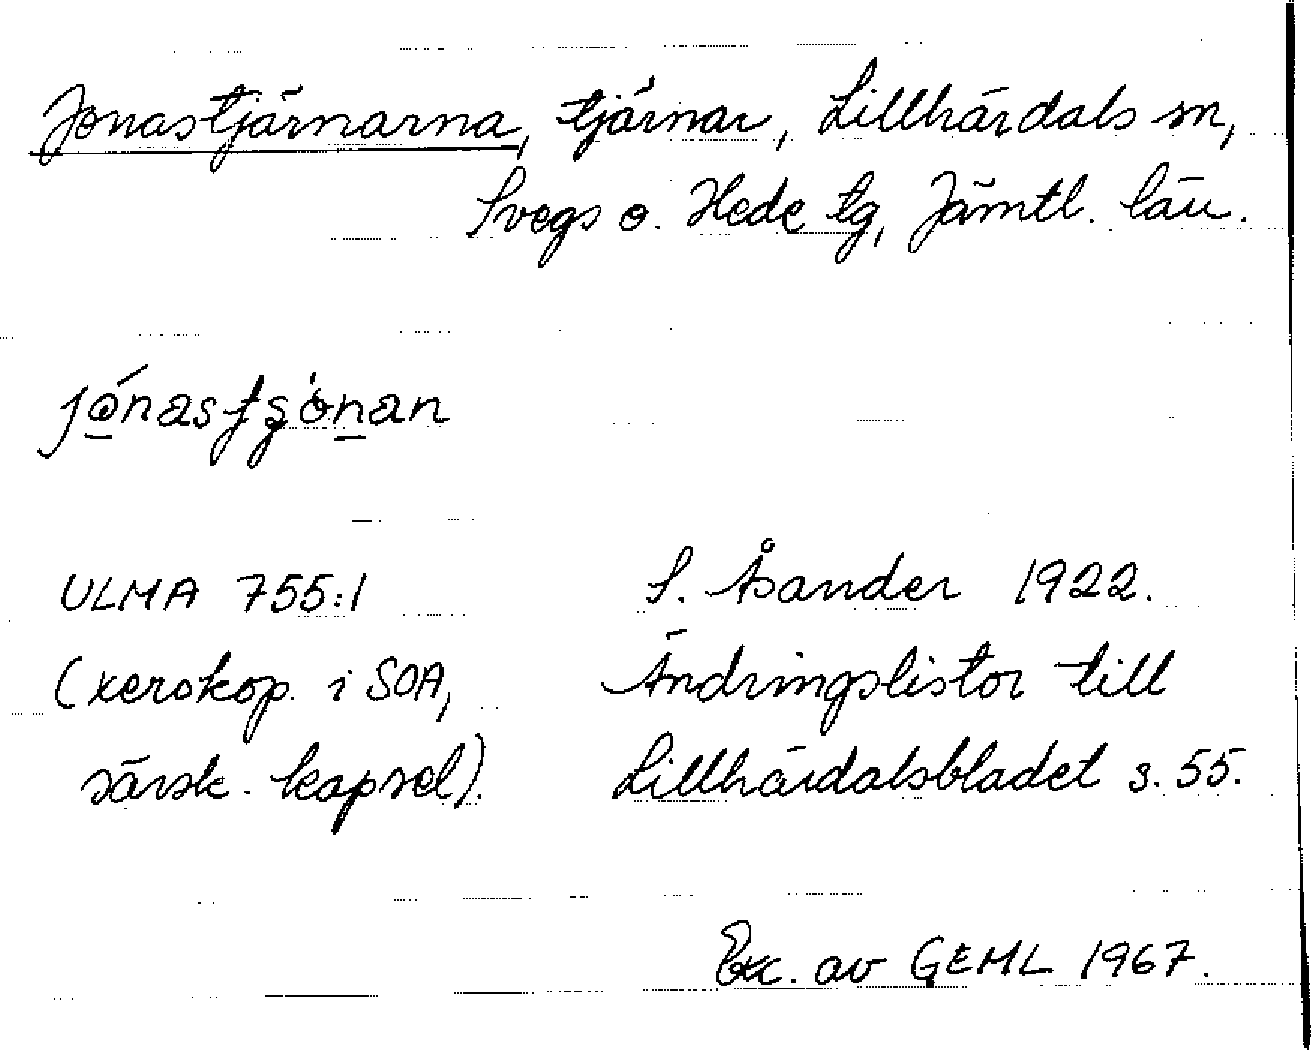 Jonastjärnarna, tjärnar, Lillhärdals sn,
Svegs o. Hede tg, Jämtl. län.
jó̲nastʂȯn̲an
ULMA 755:1 S. Åsander 1922.
(xerokop. i SOA, Ändringslistor till
särsk. kapsel). Lillhärdalsbladet s. 55.
Exc. av GEML 1967.